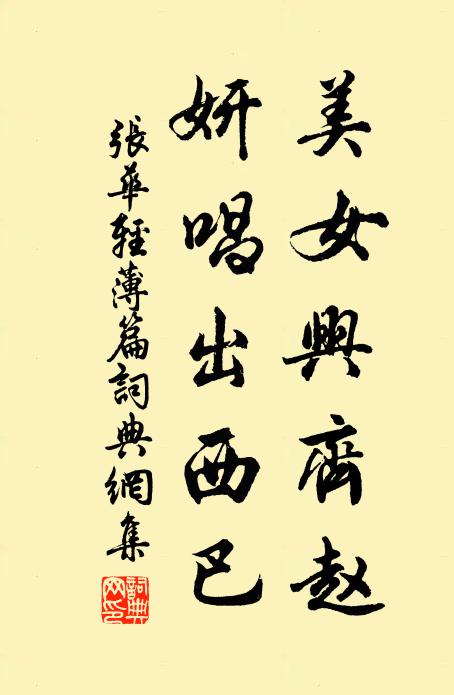 美女興齊赵
妍唱出西巴
張華輕薄篇詞典網集
詞典网印